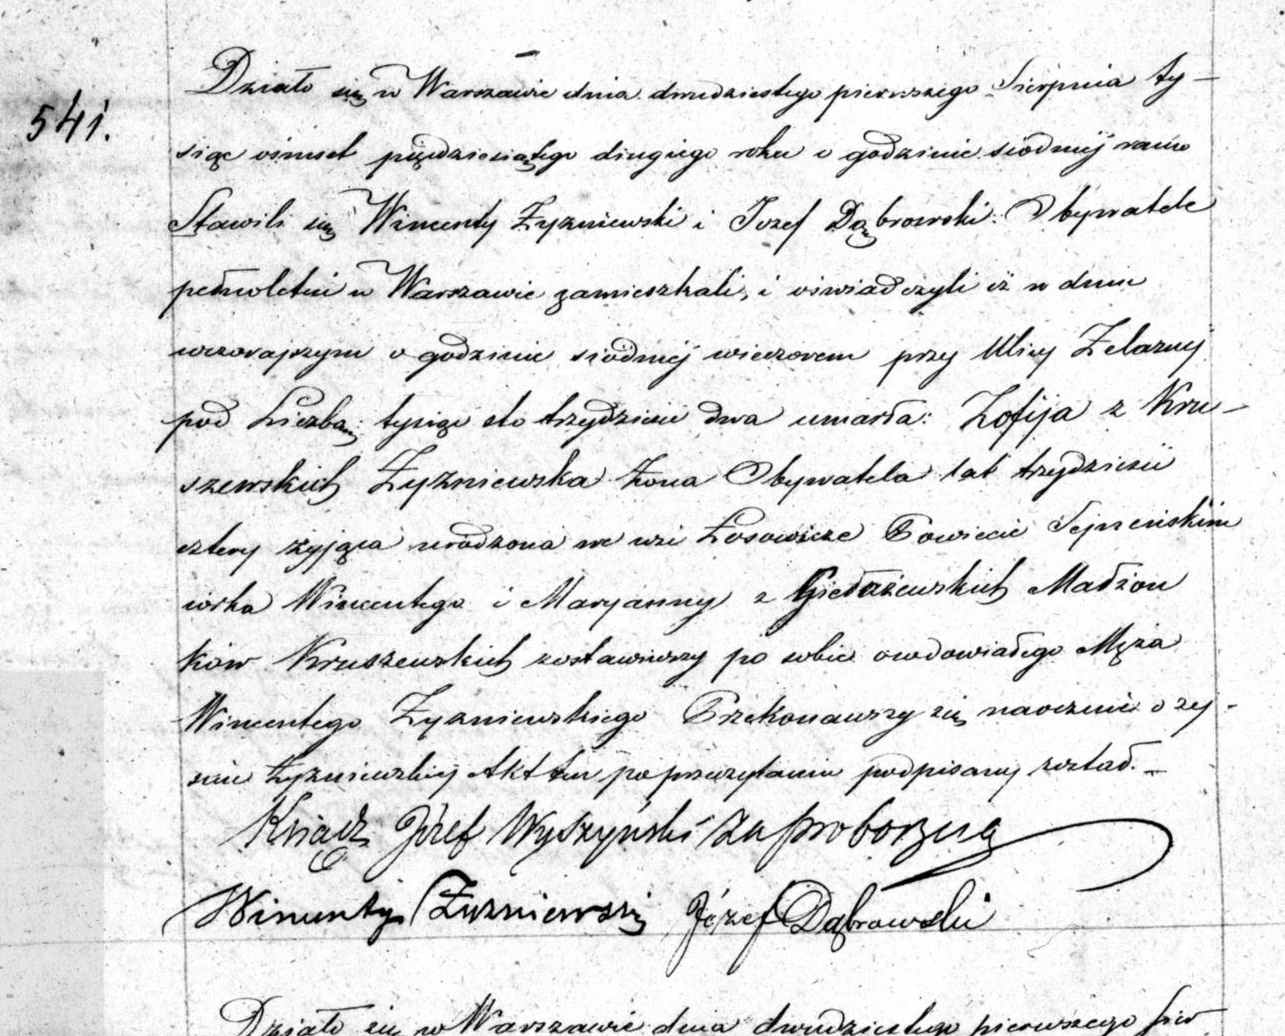 541.
Działo się w Warszawie dnia dwudziestego pierwszego Sierpnia ty-
siąc ośmset pięćdziesiątego drugiego roku o godzinie siódmej rano
Stawili się Wincenty Żyzniewski i Jozef Dąbrowski Obywatele
pełnoletni w Warszawie zamieszkali, i oświadczyli iż w dniu
wczorajszym o godzinie siódmej wieczorem przy Ulicy Żelaznej
pod Liczbą tysiąc sto trzydzieści dwa umarła: Zofija z Kru-
szewskich Żyzniewska Żona Obywatela lat trzydzieści
cztery żyjąca urodzona we wsi Powiecie Sejneńskim
córka Wincentego i Maryanny z Małżon
ków Kruszewskich zostawiwszy po sobie owdowiałego Męża
Wincentego Żyzniewskiego Przekonawszy się naocznie o zej-
ściu Żyzniewskiej Akt ten po przeczytaniu podpisany został. -
Ksiądz Józef Wyszyński za proboszcza
Wincenty Żyzniewski Józef Dąbrowski
Działo się w Warszawie dnia dwudziestego pierwszego Sier